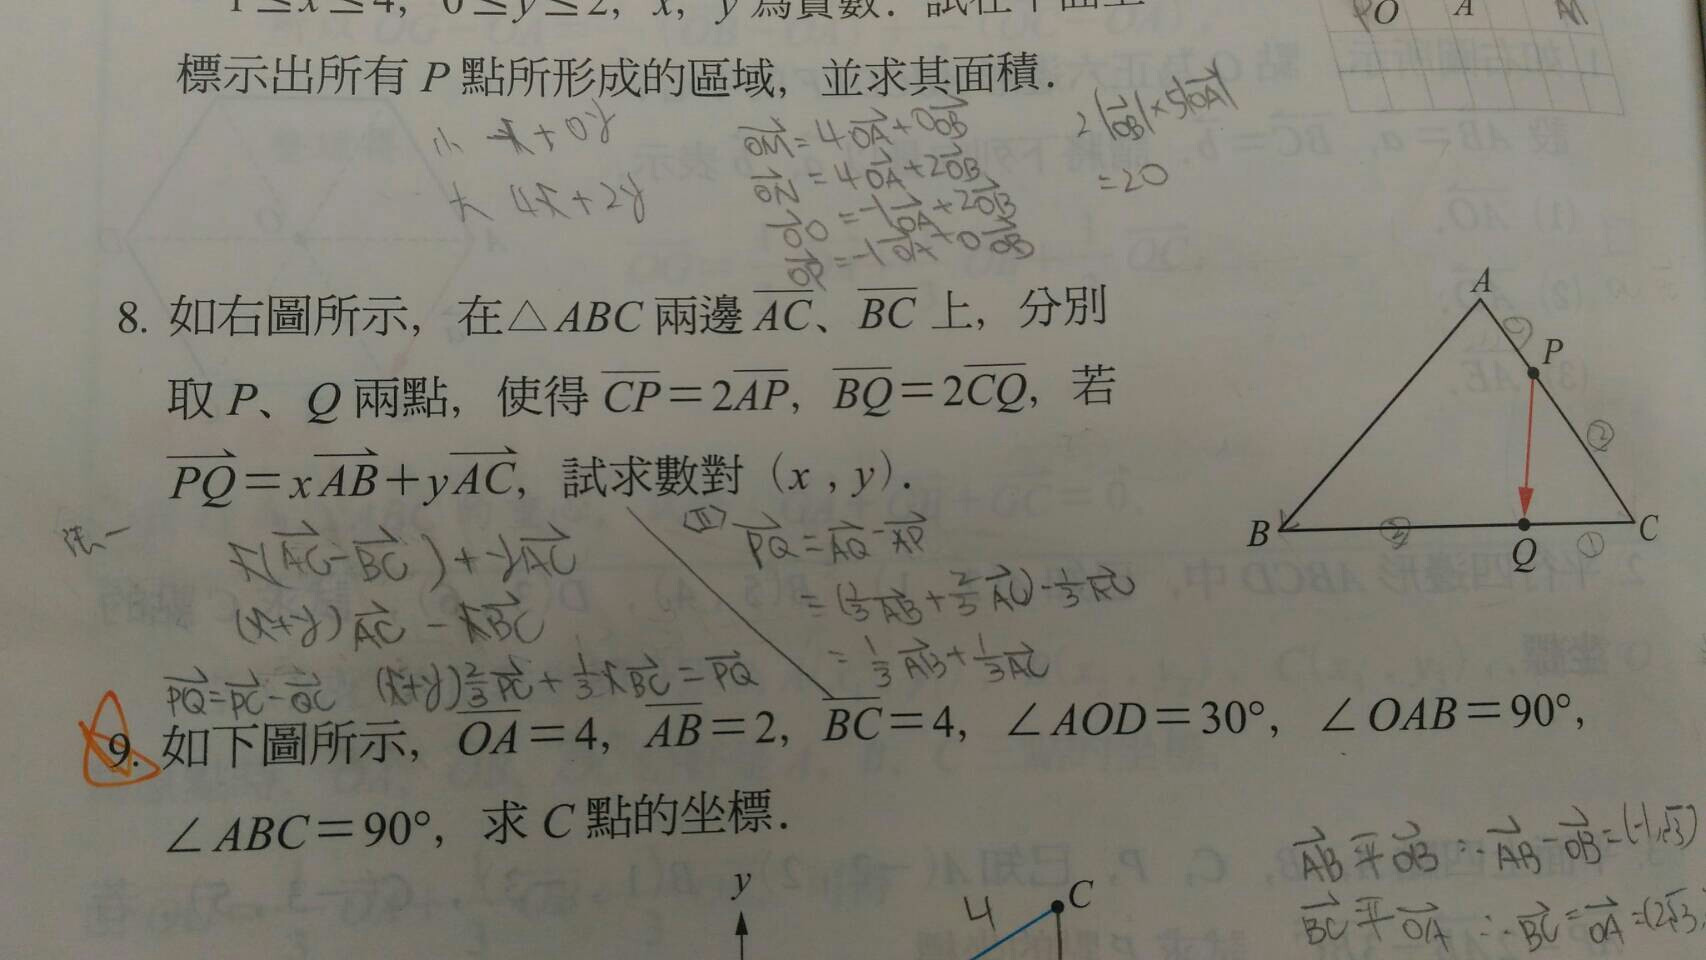 1≤x≤4, 0≤y≤2, x, y 為實數. 試在平面上
標示出所有 P 點所形成的區域, 並求其面積.
O A
小 -x+0y
大 4x+2y
OM=4OA+0OB
ON=4OA+2OB
=-1OA+2OB
OR=-1OA+0OB
2|OB|×5|OA|
=20
8. 如右圖所示, 在△ABC 兩邊 AC、BC 上, 分別
取 P、Q 兩點, 使得 CP=2AP, BQ=2CQ, 若
PQ=xAB+yAC, 試求數對 (x , y).
A
P
B
Q
C
①
②
②
①
法一
x(AC-BC)+yAC
(x+y)AC-xBC
PQ=PC-QC (x+y)2/3PC+1/3xBC=PQ
PQ=AQ-AP
=(1/3AB+2/3AC)-1/3AC
=1/3AB+1/3AC
9. 如下圖所示, OA=4, AB=2, BC=4, ∠AOD=30°, ∠OAB=90°,
∠ABC=90°, 求 C 點的坐標.
AB平OB ∴AB=OB=(-1,√3)
BC平OA ∴BC=OA=(2√3,
y
4
C